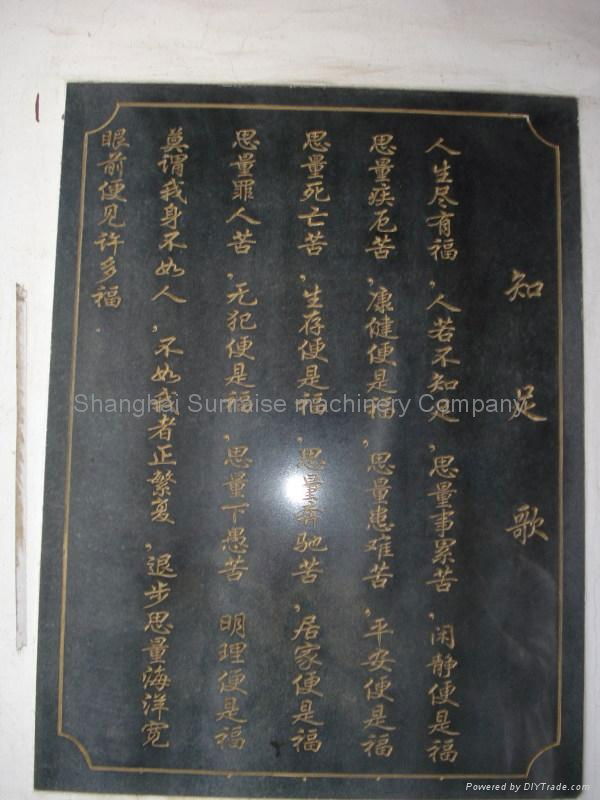 知足歌
人生尽有福,人若不知足,思量事累苦,闲静便是福
思量疾厄苦,康健便是福,思量患难苦,平安便是福
思量死亡苦,生存便是福,思量奔驰苦,居家便是福
思量罪人苦,无犯便是福,思量下愚苦 明理便是福
莫谓我身不如人,不如我者正繁,退步思量海洋宽
眼前便见许多福.
Shanghai Sunraise machinery Company
Powered by DIYTrade.com